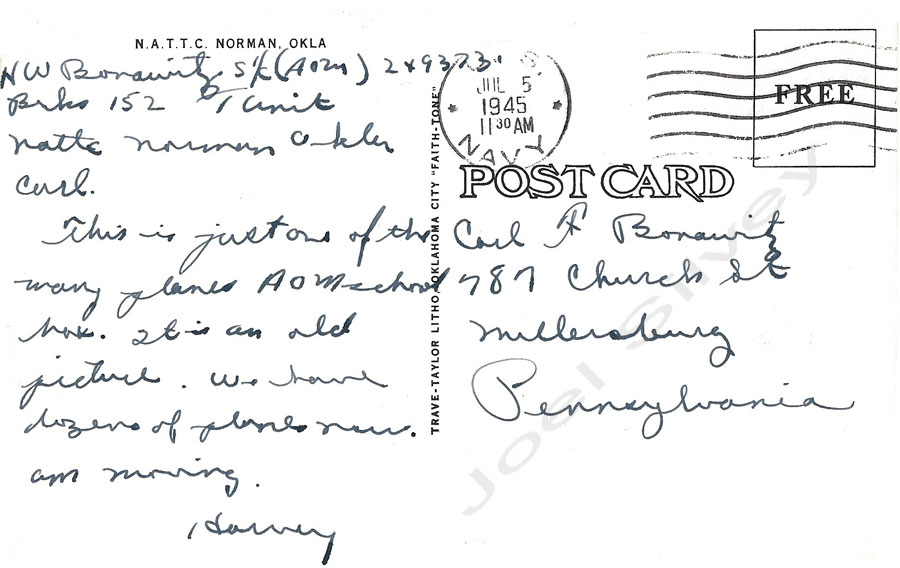 N.A.T.T.C. NORMAN, OKLA
HW Bonawitz S1/c (AOM)
Brks 152 T Unit
Nattc Norman Okla
Carl.
This is just one of the
many planes AOM school
has. It is an old
picture. We have
dozens of planes now.
am moving.
Harvey
TRAVE-TAYLOR LITHO. OKLAHOMA CITY "FAITH-TONE"
U. S.
JUL 5
1945
11 30 AM
NAVY
FREE
POST CARD
Carl F Bonawitz
787 Church St
Millersburg
Pennsylvania
Joel Silvey